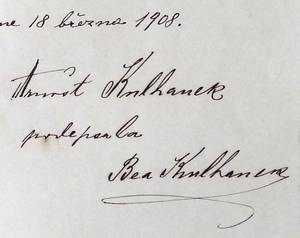 ne 18 března 1908.
Arnošt Kulhanek
podepsala
Bea Kulhanek